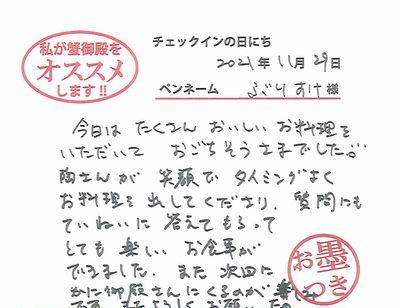 私が蟹御殿を
オススメ
します!!
チェックインの日にち
2021年11月29日
ペンネーム ぶりすけ様
今日は たくさん おいしい お料理を
いただいて おごちそうさまでした。
陶さんが 笑顔で タイミングよく
お料理を出してくださり、質問にも
ていねいに 答えてもらって
とても 楽しい お食事が
できました。また 次回に
かに御殿さんにくるのが 楽しみ
です。またよろしくお願い
お墨
つき